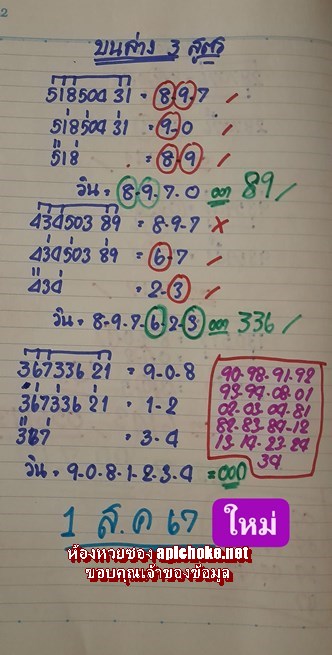 2
บนล่าง 3 สูตร
518504 31 = 8-9-7 /
518504 31 = 9-0 /
518 = 8-9 /
วิน = 8-9-7-0 ออก 89 /
434503 89 = 8-9-7 x
434503 89 = 6-7 /
434 = 2-3 /
วิน = 8-9-7-6-2-3 ออก 336 /
367336 21 = 9-0-8
367336 21 = 1-2
367 = 3-4
วิน = 9-0-8-1-2-3-4 = 000
90-98-91-92
93-94-08-01
02-03-04-81
82-83-84-12
13-14-23-24
34
1 ส.ค 67 ใหม่
ห้องหวยซอง apichoke.net
ขอบคุณเจ้าของข้อมูล